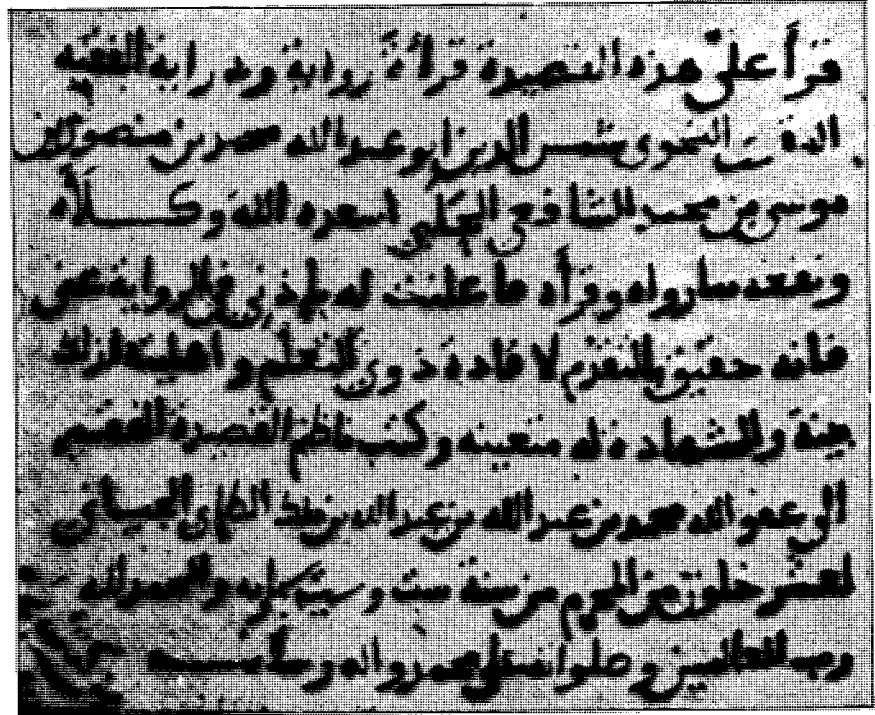 قرأ علىّ هذه القصيدة قراءة رواية ودراية الفقيه
النحوى شمس الدين ابو عبد الله محمد بن منصور بن
موسى بن محمد الشافعى الحلبى اسعده الله وكلأه
ونفعه بما رواه وقرأه فاعلنت له باذنى فى الرواية عنى
فانه حقيق بالتقدم لافادة ذوى التعلم واهليته لذلك
بينة والشهادة له متعينه وكتب ناظم القصيدة الفقير
الى عفو الله محمد بن عبد الله بن عبد الله بن ملك الطاى الجيانى
لعشر خلون من المحرم من سنة ست وستين وستمايه والحمد لله
رب العالمين وصلواته على محمد واله وسلامـــه